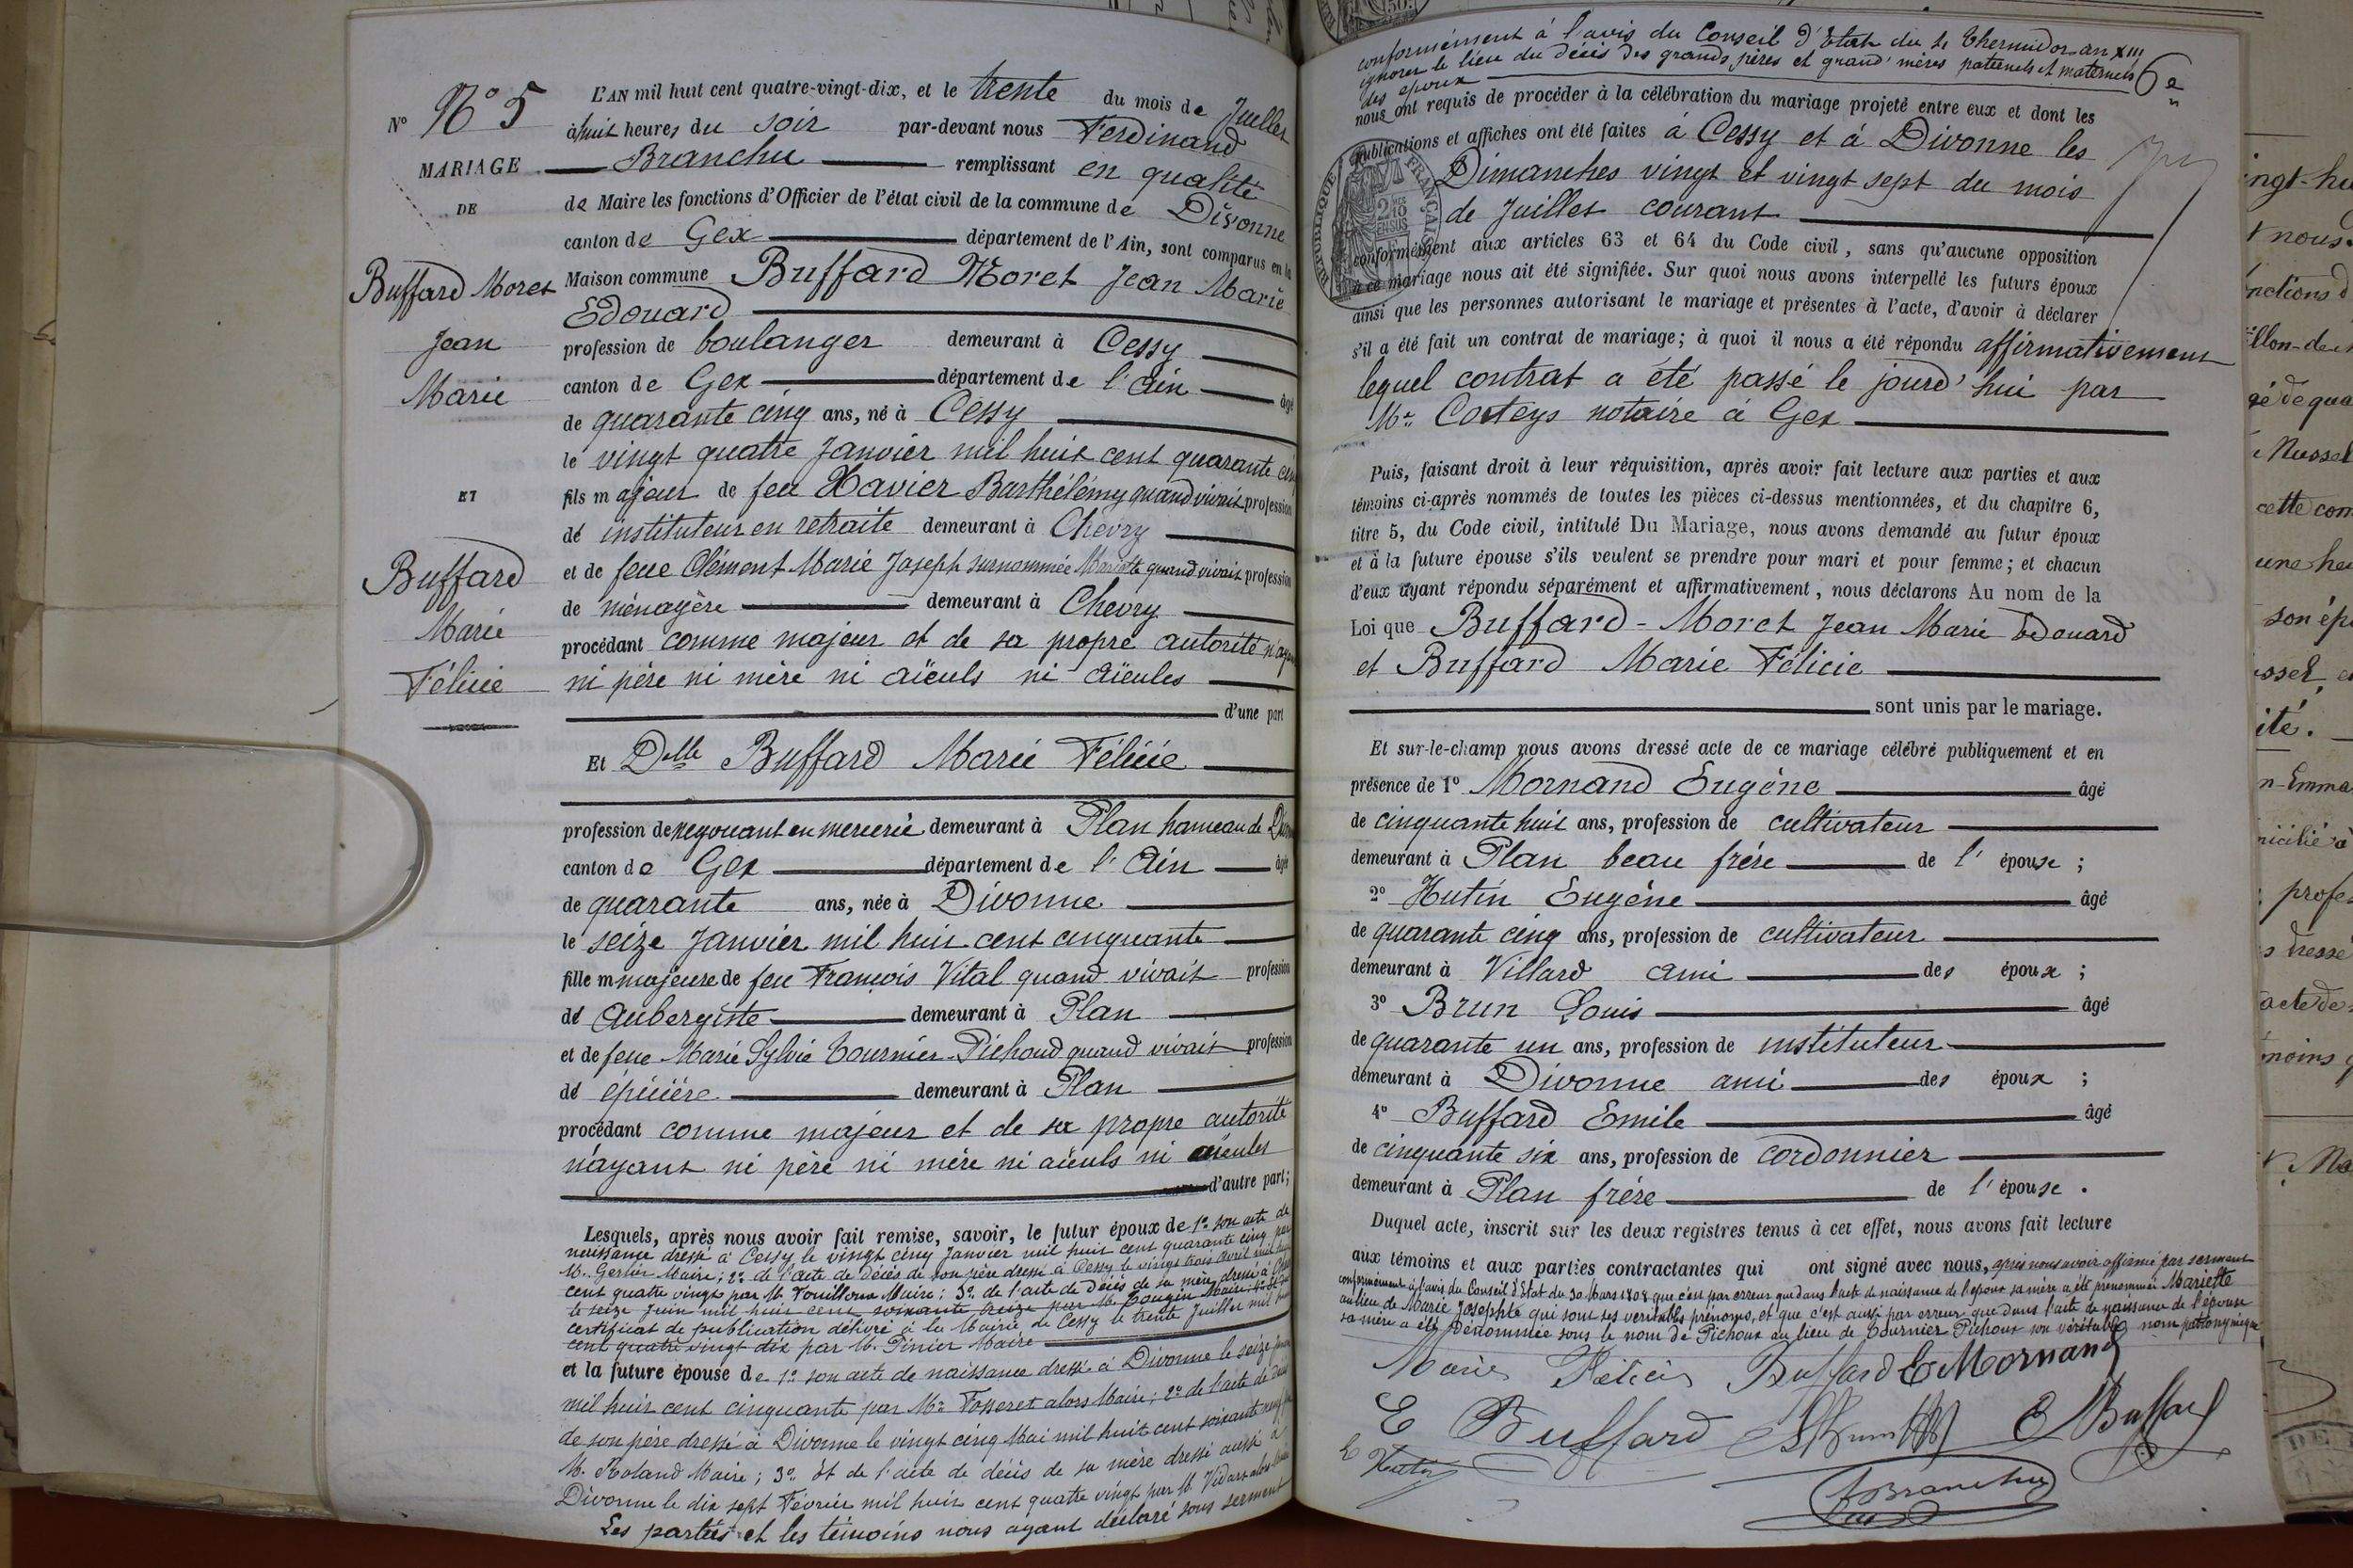 N° N° 5
MARIAGE
DE
Buffard Moret
Jean
Marie
ET
Buffard
Marie
Félicie
L'AN mil huit cent quatre-vingt-dix, et le trente du mois de Juillet
à huit heures du soir par-devant nous Ferdinand
Branchu remplissant en qualité
de Maire les fonctions d'Officier de l'état civil de la commune de Divonne
canton de Gex département de l'Ain, sont comparus en la
Maison commune Buffard Moret Jean Marie
Edouard
profession de boulanger demeurant à Cessy
canton de Gex département de l'Ain âgé
de quarante cinq ans, né à Cessy
le vingt quatre Janvier mil huit cent quarante cinq
fils majeur de feu Xavier Barthélémy quand vivait profession
de instituteur en retraite demeurant à Chevry
et de feue Clément Marie Joseph surnommée Mariette quand vivait profession
de ménagère demeurant à Chevry
procédant comme majeur et de sa propre autorité n'ayant
ni père ni mère ni aïeuls ni aïeules
d'une part
Et Delle Buffard Marie Félicie
profession de négociant en mercerie demeurant à Plan hameau de
canton de Gex département de l'Ain âgée
de quarante ans, née à Divonne
le seize Janvier mil huit cent cinquante
fille majeure de feu François Vital quand vivait profession
de Aubergiste demeurant à Plan
et de feue Marie Sylvie Tournier-Pichoud quand vivait profession
de épicière demeurant à Plan
procédant comme majeur et de sa propre autorité
n'ayant ni père ni mère ni aïeuls ni aïeules
d'autre part;
Lesquels, après nous avoir fait remise, savoir, le futur époux de 1° son acte de
naissance dressé à Cessy le vingt cinq Janvier mil huit cent quarante cinq par
M. Gerlier Maire; 2° de l'acte de décès de son père dressé à Cessy le vingt trois Avril mil huit
cent quatre vingt par M. Fouilloux Maire; 3° de l'acte de décès de sa mère dressé à
le seize Juin mil huit cent soixante treize par M. Maire;
certificat de publication délivré à la Mairie de Cessy le trente Juillet mil huit
cent quatre vingt dix par M. Pinier Maire
et la future épouse de 1° son acte de naissance dressé à Divonne le seize
mil huit cent cinquante par Mr Fosseret alors Maire; 2° de l'acte de décès
de son père dressé à Divonne le vingt cinq Mai mil huit cent soixante neuf
M. Roland Maire; 3° Et de l'acte de décès de sa mère dressé aussi à
Divonne le dix sept Février mil huit cent quatre vingt par M. Vidart alors
Les parties et les témoins nous ayant déclaré sous serment
conformément à l'avis du Conseil d'Etat du 4 Thermidor an XIII
ignorer le lieu du décès des grands pères et grand'mères paternels et maternels
des époux
6e
nous ont requis de procéder à la célébration du mariage projeté entre eux et dont les
publications et affiches ont été faites à Cessy et à Divonne les
Dimanches vingt et vingt sept du mois
de Juillet courant
conformément aux articles 63 et 64 du Code civil, sans qu'aucune opposition
à ce mariage nous ait été signifiée. Sur quoi nous avons interpellé les futurs époux
ainsi que les personnes autorisant le mariage et présentes à l'acte, d'avoir à déclarer
s'il a été fait un contrat de mariage; à quoi il nous a été répondu affirmativement
lequel contrat a été passé le jourd'hui par
Me Costeys notaire à Gex
Puis, faisant droit à leur réquisition, après avoir fait lecture aux parties et aux
témoins ci-après nommés de toutes les pièces ci-dessus mentionnées, et du chapitre 6,
titre 5, du Code civil, intitulé Du Mariage, nous avons demandé au futur époux
et à la future épouse s'ils veulent se prendre pour mari et pour femme; et chacun
d'eux ayant répondu séparément et affirmativement, nous déclarons Au nom de la
Loi que Buffard-Moret Jean Marie Edouard
et Buffard Marie Félicie
sont unis par le mariage.
Et sur-le-champ nous avons dressé acte de ce mariage célébré publiquement et en
présence de 1° Mornand Eugène âgé
de cinquante huit ans, profession de cultivateur
demeurant à Plan beau frère de l'épouse;
2° Hutin Eugène âgé
de quarante cinq ans, profession de cultivateur
demeurant à Villard ami des époux;
3° Brun Louis âgé
de quarante un ans, profession de instituteur
demeurant à Divonne ami des époux;
4° Buffard Emile âgé
de cinquante six ans, profession de cordonnier
demeurant à Plan frère de l'épouse.
Duquel acte, inscrit sur les deux registres tenus à cet effet, nous avons fait lecture
aux témoins et aux parties contractantes qui ont signé avec nous, après nous avoir affirmé par serment
conformément à l'avis du Conseil d'Etat du 30 Mars 1808 que c'est par erreur que dans l'acte de naissance de l'époux sa mère a été prénommée Mariette
au lieu de Marie Josephte qui sont ses véritables prénoms, et que c'est aussi par erreur que dans l'acte de naissance de l'épouse
sa mère a été dénommée sous le nom de Pichoux au lieu de Tournier Pichoux son véritable nom patronymique
Marie Félicie Buffard E Mornand
E Buffard LBrun E Buffard
E Hutin
FBranchu